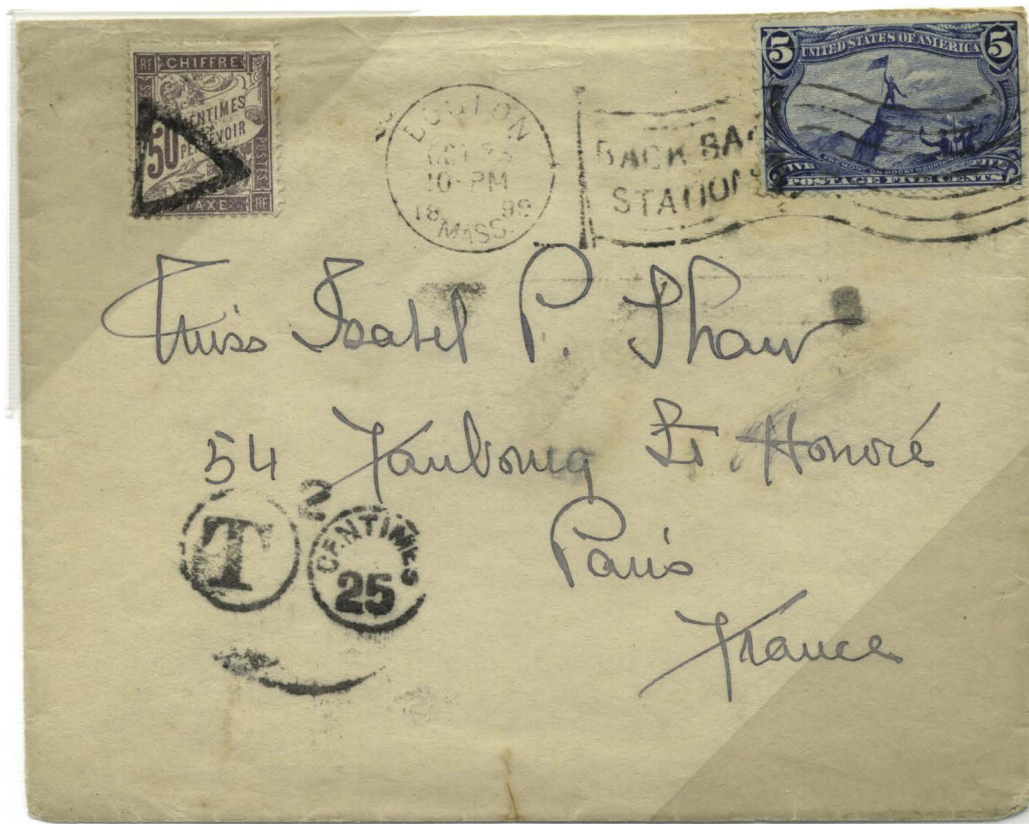 RF CHIFFRE
CENTIMES
50 PERCEVOIR
POSTES
TAXE RF
BOSTON
10-PM
18 98
MASS.
BACK BAY
STATION
5 UNITED STATES OF AMERICA 5
FIVE FIVE
POSTAGE FIVE CENTS
Miss Isabel P. Shaw
54 Faubourg St. Honoré
Paris
France
T
2
CENTIMES
25